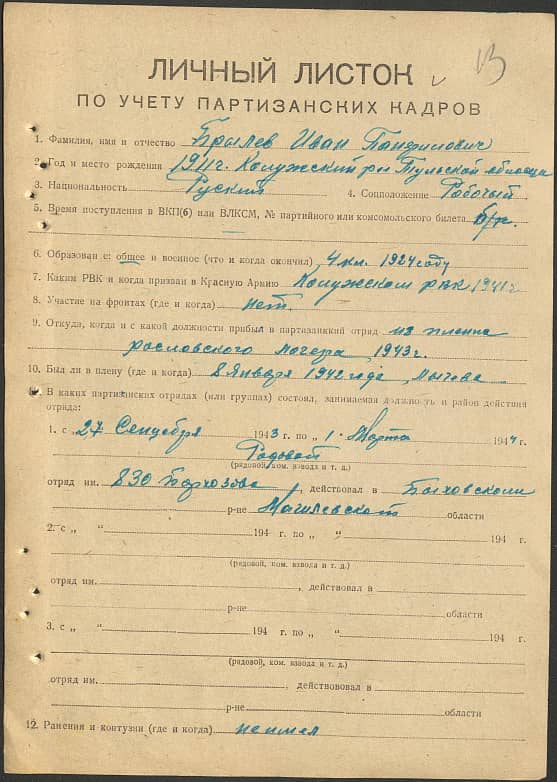 13
ЛИЧНЫЙ ЛИСТОК
ПО УЧЕТУ ПАРТИЗАНСКИХ КАДРОВ
1. Фамилия, имя и отчество Брылев Иван Панфилович
2. Год и место рождения 1911 г. Калужский рн Тульской области
3. Национальность Руский 4. Соцположение Робочый
5. Время поступления в ВКП(б) или ВЛКСМ, № партийного или комсомольского билета б/п.
6. Образован е: общее и военное (что и когда окончил) 4 кл. 1924 году
7. Каким РВК и когда призван в Красную Армию Калужском РВК 1941 г
8. Участие на фронтах (где и когда) нет.
9. Откуда, когда и с какой должности прибыл в партизанский отряд из плена
рославского лагера 1943 г.
10. Был ли в плену (где и когда) 8 Января 1942 года,
11. В каких партизанских отрядах (или группах) состоял, занимаемая должность и район действия
отряда:
1. с 27 Сенцебря 1943 г. по „ 1 " Марта 1944 г.
Родовой
(рядовой, ком. взвода и т. д.)
отряд им. 830, действовал в Быховском
р-не Магилевской области
2. с „ " 194 г. по „ " 194 г.
(рядовой, ком. взвода и т. д.)
отряд им. , действовал в
р-не области
3. с „ " 194 г. по „ " 194 г.
(рядовой, ком. взвода и т. д.)
отряд им. , действовал в
р-не области
12. Ранения и контузии (где и когда) неимел